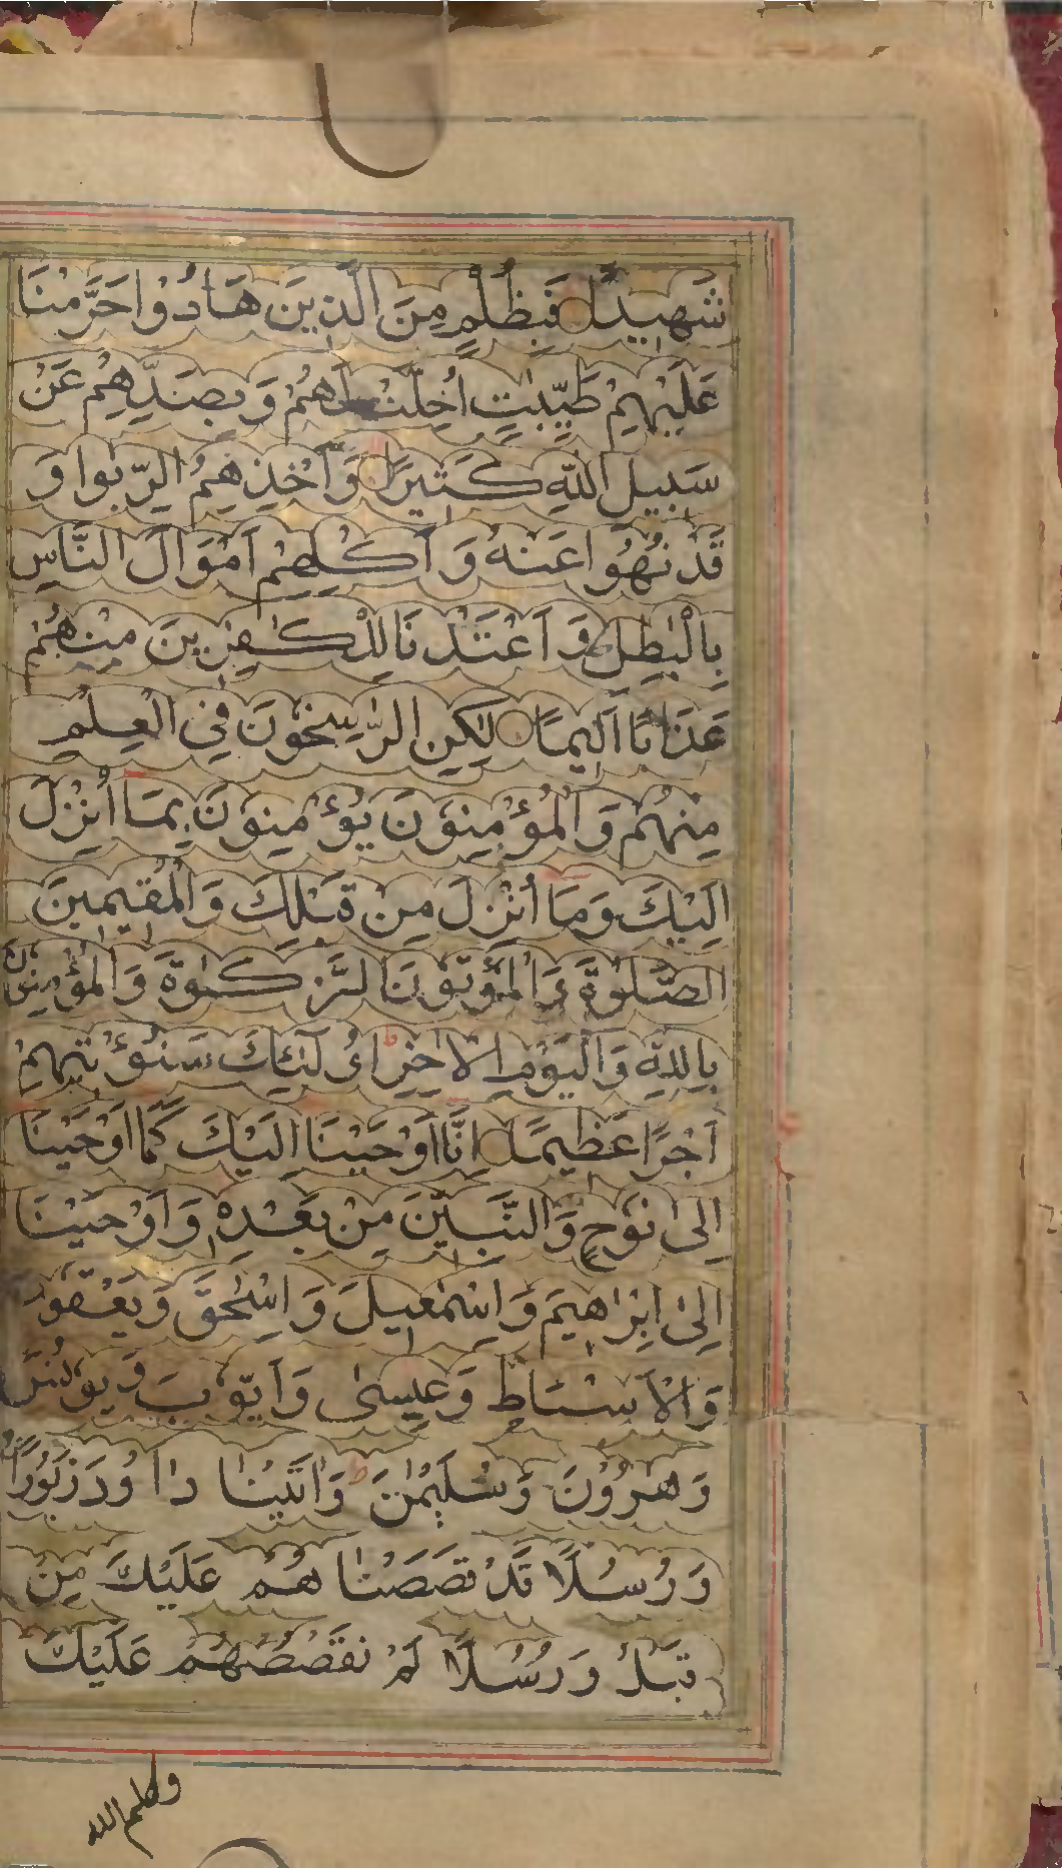 شَهِيدًا فَبِظُلْمٍ مِنَ الَّذِينَ هَادُوْا حَرَّمْنَا
عَلَيْهِمْ طَيِّبٰتٍ اُحِلَّتْ لَهُمْ وَبِصَدِّهِمْ عَنْ
سَبِيلِ اللّٰهِ كَثِيرًا وَاَخْذِهِمُ الرِّبٰوا وَ
قَدْ نُهُوْا عَنْهُ وَاَكْلِهِمْ اَمْوَالَ النَّاسِ
بِالْبٰطِلِ وَاَعْتَدْنَا لِلْكٰفِرِينَ مِنْهُمْ
عَذَابًا اَلِيمًا لٰكِنِ الرّٰسِخُوْنَ فِي الْعِلْمِ
مِنْهُمْ وَالْمُؤْمِنُوْنَ يُؤْمِنُوْنَ بِمَا اُنْزِلَ
اِلَيْكَ وَمَا اُنْزِلَ مِنْ قَبْلِكَ وَالْمُقِيمِينَ
الصَّلٰوةَ وَالْمُؤْتُوْنَ الزَّكٰوةَ وَالْمُؤْمِنُوْنَ
بِاللّٰهِ وَالْيَوْمِ الْاٰخِرِ اُولٰٓئِكَ سَنُؤْتِيهِمْ
اَجْرًا عَظِيمًا اِنَّا اَوْحَيْنَا اِلَيْكَ كَمَا اَوْحَيْنَا
اِلٰى نُوْحٍ وَالنَّبِيّٖنَ مِنْ بَعْدِهٖ وَاَوْحَيْنَا
اِلٰى اِبْرٰهِيمَ وَاِسْمٰعِيلَ وَاِسْحٰقَ وَيَعْقُوْبَ
وَالْاَسْبَاطِ وَعِيسٰى وَاَيُّوْبَ وَيُوْنُسَ
وَهٰرُوْنَ وَسُلَيْمٰنَ وَاٰتَيْنَا دَاوُدَ زَبُوْرًا
وَرُسُلًا قَدْ قَصَصْنَاهُمْ عَلَيْكَ مِنْ
قَبْلُ وَرُسُلًا لَمْ نَقْصُصْهُمْ عَلَيْكَ
وكلم الله